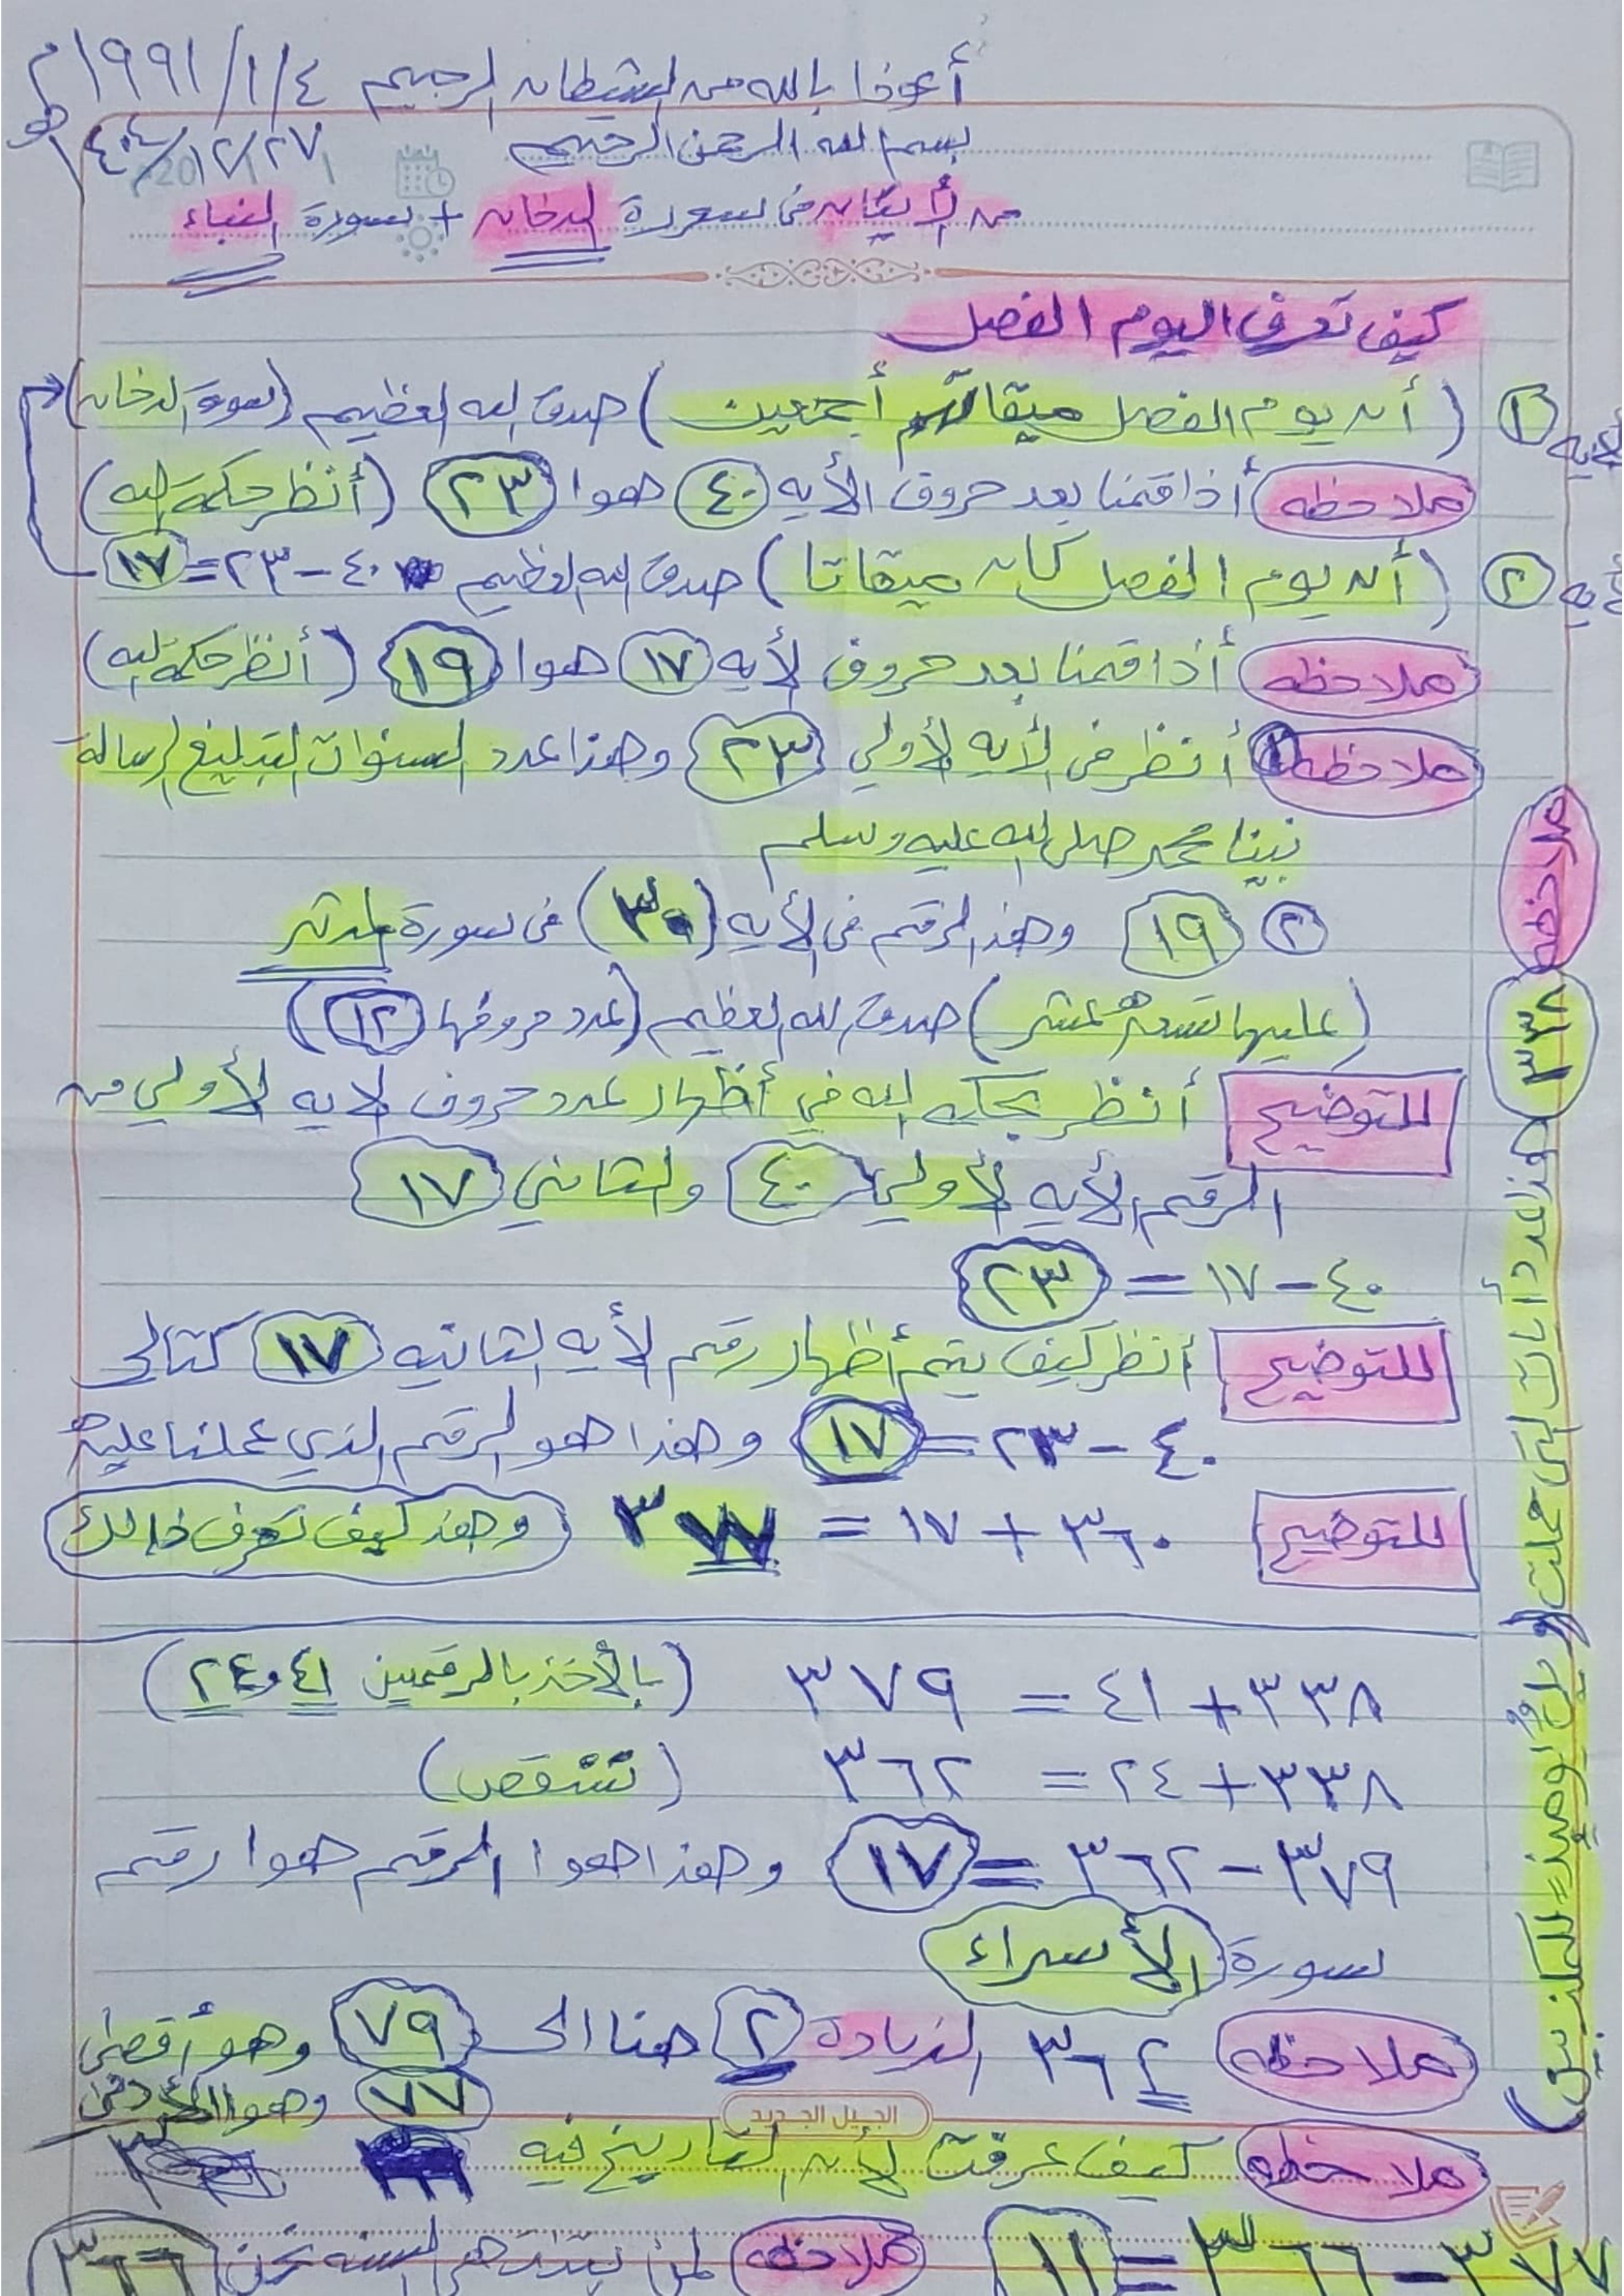 أعوذا بالله من الشيطان الرجيم ١٩٩١/١/٤م
بسم الله الرحمن الرحيم ١٢/٢٧/ هـ
من الأيتان في سورة الدخان + سورة النباء
كيف تعرف اليوم الفصل
الايه ① (أن يوم الفصل ميقاتهم أجمعين) صدق الله العظيم (سورة الدخان)
ملاحظه أذا قمنا بعد حروف الأيه ٤٠ هوا ٢٣ (أنظر حكمة الله)
أيه ② (أن يوم الفصل كان ميقاتا) صدق الله العظيم ٤٠-٢٣=١٧
ملاحظه أذا قمنا بعد حروف لأيه ١٧ هوا ١٩ (أنظر حكمة الله)
ملاحظه ① أنظر في لأيه لأولي ٢٣ وهذا عدد السنوات لتبليغ الرسالة
نبينا محمد صلى الله عليه وسلم
② ١٩ وهذ الرقم في الأيه (٣٠) في سورة المدثر
(عليها تسعة عشر) صدق الله العظيم (عدد حروفها ١٢)
للتوضيح أنظر بحكمه الله في أظهار عدد حروف لايه لأولي من
الرقم الأيه لأولي ٤٠ والثاني ١٧
٤٠-١٧ = ٢٣
للتوضيح أنظر كيف يتم أظهار رقم لأيه الثانيه ١٧ كتالى
٤٠-٢٣=١٧ وهذا هو الرقم الذي عملنا علية
للتوضيح ٣٦٠+١٧ = ٣٧٧ وهذ كيف تعرف ذالك
٣٣٨+٤١ = ٣٧٩ (بالأخذ بالرقمين ٤١ و٢٤)
٣٣٨+٢٤ = ٣٦٢ (تنقص)
٣٧٩-٣٦٢=١٧ وهذا هوا الرقم هوا رقم
سورة الأسراء
ملاحظه ٣٦٢ الزيادة ٢ هنا الى ٧٩ وهو أقصى
٧٧ وهو
الجيل الجديد
ملاحظه كيف عرفت لأن التاريخ فيه
٣٧٧-٣٦٦=١١ ملاحظه السنه نحن ٣٦٦
ملاحظه ٣٣٨ هذا عدد أيات التى حملت (ويل يومئذ للمكذبين)